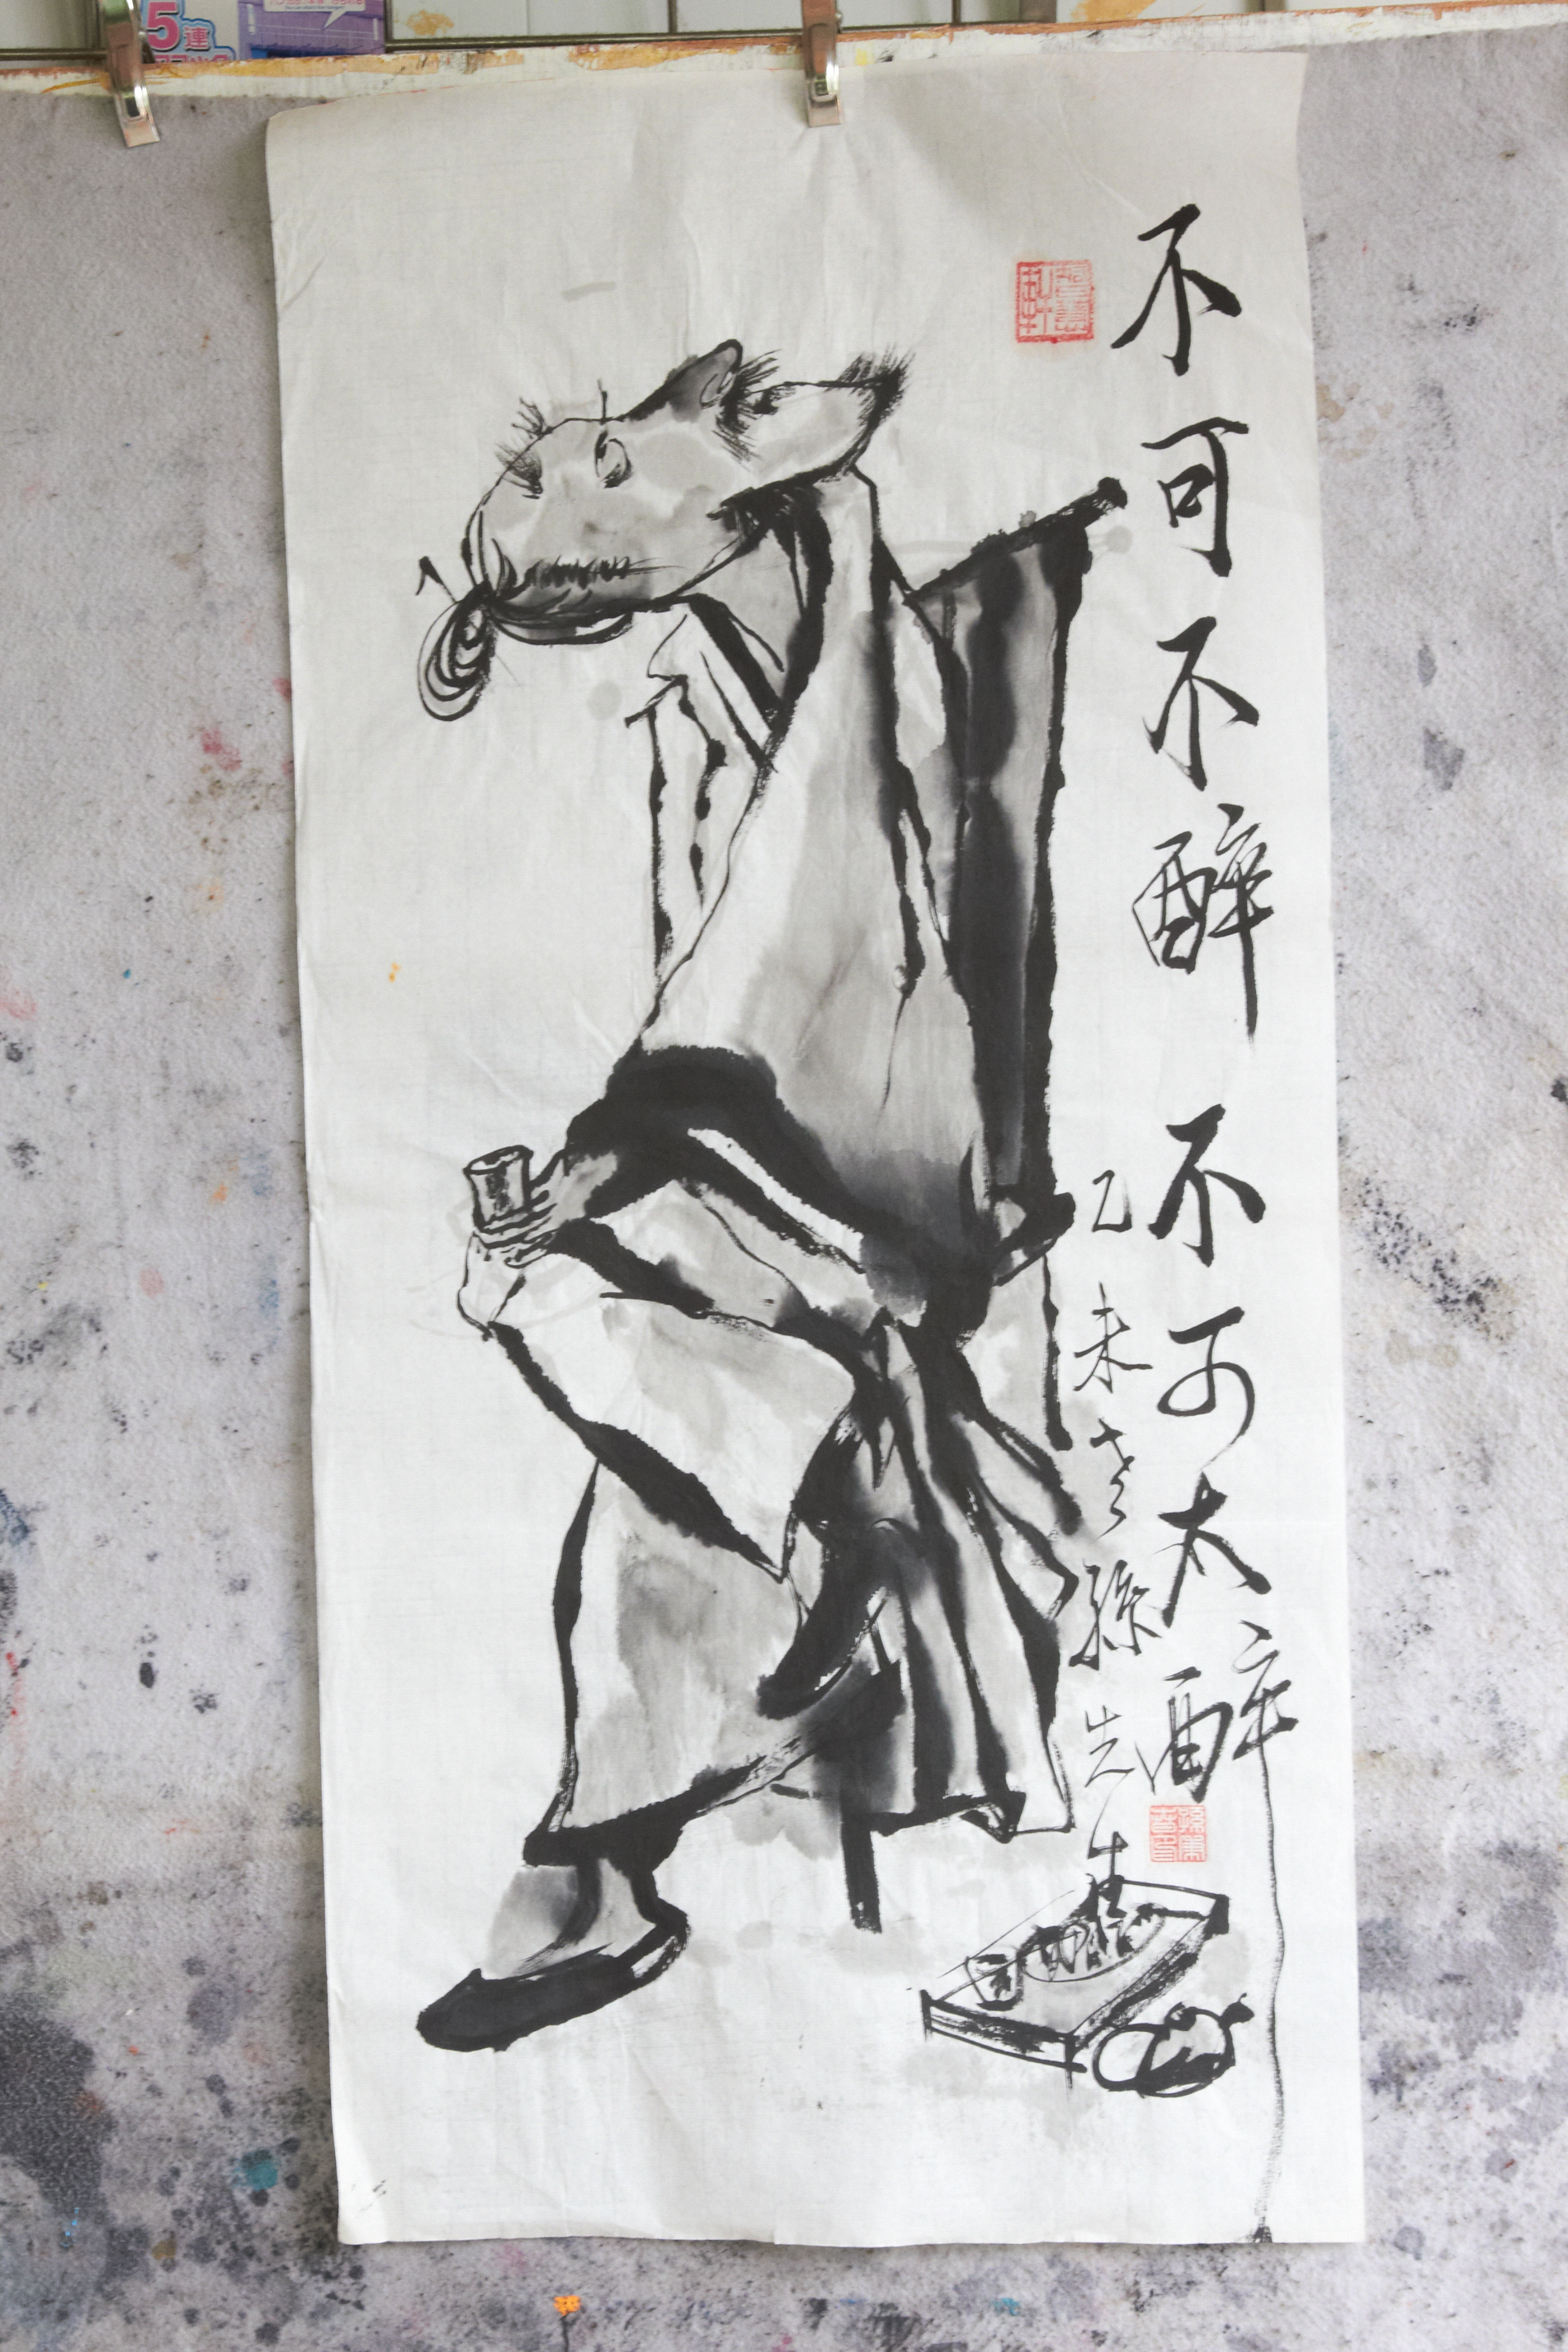 不可不醉 不可大醉
乙未 孫先生
5連